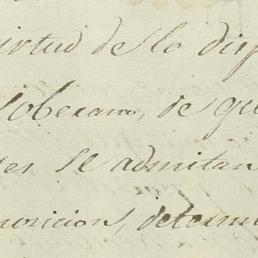 irtud de lo disp
soberano, de qu
tes se admitan
uricion, determi